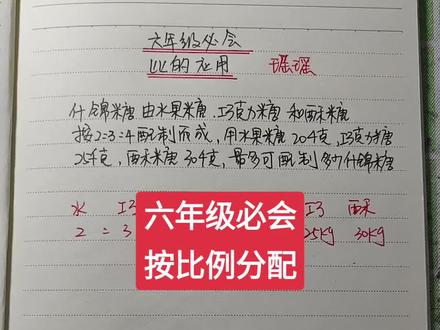 六年级必会
比的应用
瑶瑶
什锦糖由水果糖、巧克力糖和酥糖
按2:3:4配制而成,用水果糖20千克,巧克力糖
25千克,酥糖30千克,最多可配制多少什锦糖
水 巧 巧 酥
2 : 3 25kg 30kg
六年级必会
按比例分配